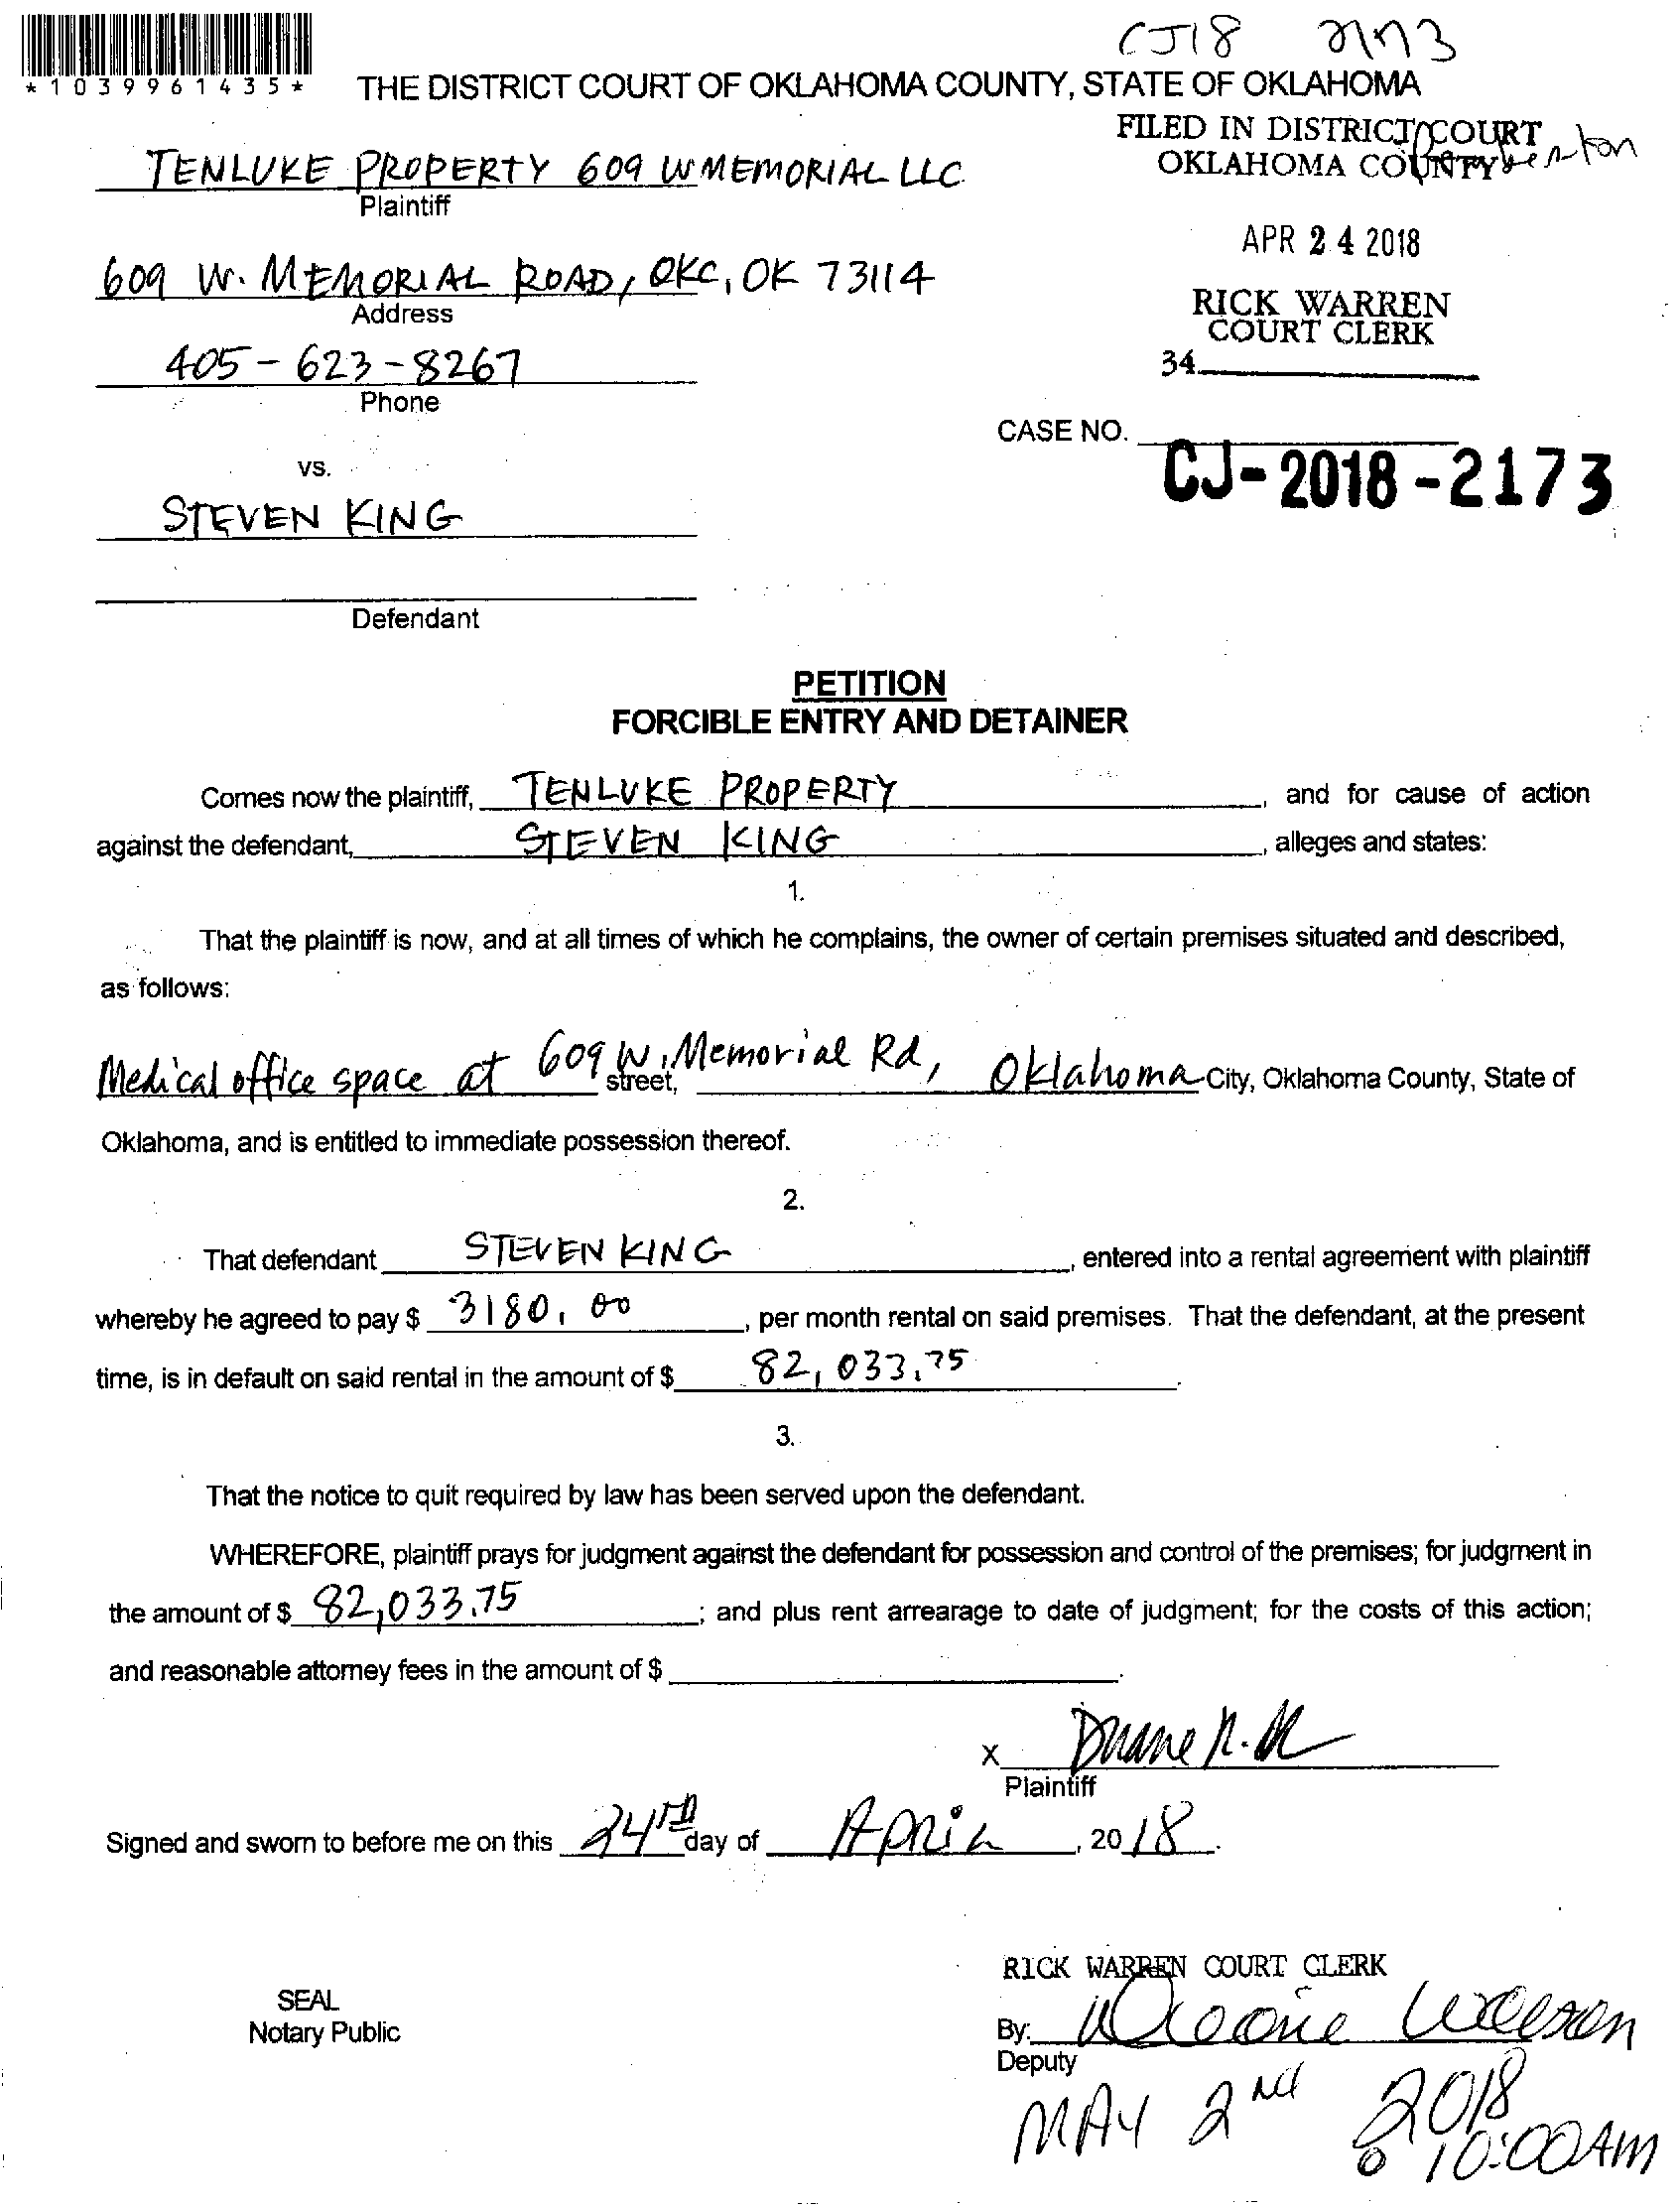 CJ18 2173
*1039961435*
THE DISTRICT COURT OF OKLAHOMA COUNTY, STATE OF OKLAHOMA
FILED IN DISTRICT COURT
OKLAHOMA COUNTY
TENLUKE PROPERTY 609 W MEMORIAL LLC
Plaintiff
APR 24 2018
609 W. MEMORIAL ROAD, OKC, OK 73114
Address
RICK WARREN
COURT CLERK
405-623-8267
34
Phone
CASE NO.
CJ-2018-2173
vs.
STEVEN KING
Defendant
PETITION
FORCIBLE ENTRY AND DETAINER
Comes now the plaintiff, TENLUKE PROPERTY, and for cause of action
against the defendant, STEVEN KING, alleges and states:
1.
That the plaintiff is now, and at all times of which he complains, the owner of certain premises situated and described,
as follows:
Medical office space at 609 W. Memorial Rd, street, Oklahoma City, Oklahoma County, State of
Oklahoma, and is entitled to immediate possession thereof.
2.
That defendant STEVEN KING, entered into a rental agreement with plaintiff
whereby he agreed to pay $ 3180.00, per month rental on said premises. That the defendant, at the present
time, is in default on said rental in the amount of $ 82,033.75.
3.
That the notice to quit required by law has been served upon the defendant.
WHEREFORE, plaintiff prays for judgment against the defendant for possession and control of the premises; for judgment in
the amount of $ 82,033.75; and plus rent arrearage to date of judgment; for the costs of this action;
and reasonable attorney fees in the amount of $.
X Duane
Plaintiff
Signed and sworn to before me on this 24th day of April, 2018.
RICK WARREN COURT CLERK
SEAL
Notary Public
By:
Deputy
MAY 2nd 2018
10:00AM